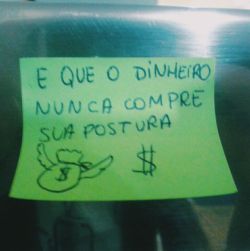 E QUE O DINHEIRO
NUNCA COMPRE
SUA POSTURA
$ $